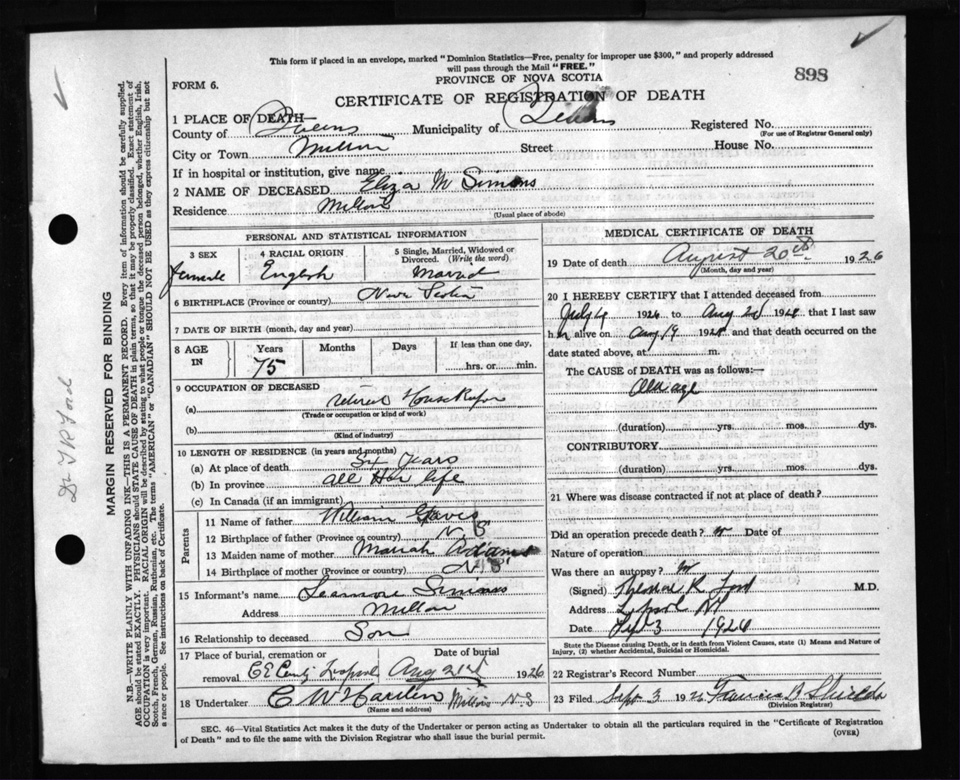 This form if placed in an envelope, marked "Dominion Statistics—Free, penalty for improper use $300," and properly addressed
will pass through the Mail "FREE."
898
FORM 6.
PROVINCE OF NOVA SCOTIA
CERTIFICATE OF REGISTRATION OF DEATH
1 PLACE OF DEATH
County of Queens Municipality of Queens Registered No.
(For use of Registrar General only)
City or Town Milton Street House No.
If in hospital or institution, give name
2 NAME OF DECEASED Eliza M Simons
Residence Milton
(Usual place of abode)
PERSONAL AND STATISTICAL INFORMATION
3 SEX 4 RACIAL ORIGIN 5 Single, Married, Widowed or Divorced. (Write the word)
female English Married
6 BIRTHPLACE (Province or country) Nova Scotia
7 DATE OF BIRTH (month, day and year)
8 AGE IN Years Months Days If less than one day,
75 hrs. or min.
9 OCCUPATION OF DECEASED
(a) retired HouseKeeper
(Trade or occupation or kind of work)
(b)
(Kind of industry)
10 LENGTH OF RESIDENCE (in years and months)
(a) At place of death Years
(b) In province all Her life
(c) In Canada (if an immigrant)
Parents
11 Name of father William
12 Birthplace of father (Province or country) N. S
13 Maiden name of mother Mariah Adams
14 Birthplace of mother (Province or country) N. S
15 Informant's name Simons
Address Milton
16 Relationship to deceased Son
17 Place of burial, cremation or removal Date of burial
Aug 21st 1926
18 Undertaker C W Harlen Milton N S
(Name and address)
MEDICAL CERTIFICATE OF DEATH
19 Date of death August 20th 1926
(Month, day and year)
20 I HEREBY CERTIFY that I attended deceased from
July 4 1926 to Aug 20 1926 that I last saw
h alive on Aug 19 1926 and that death occurred on the
date stated above, at m.
The CAUSE of DEATH was as follows:—
Old age
(duration) yrs. mos. dys.
CONTRIBUTORY
(duration) yrs. mos. dys.
21 Where was disease contracted if not at place of death?
Did an operation precede death? no Date of
Nature of operation
Was there an autopsy? no
(Signed) Theodore R Ford M.D.
Address L'pool NS
Date Sept 3 1926
State the Disease causing Death, or in death from Violent Causes, state (1) Means and Nature of
Injury, (2) whether Accidental, Suicidal or Homicidal.
22 Registrar's Record Number
23 Filed Sept 3 192 Francis
(Division Registrar)
SEC. 46—Vital Statistics Act makes it the duty of the Undertaker or person acting as Undertaker to obtain all the particulars required in the "Certificate of Registration
of Death" and to file the same with the Division Registrar who shall issue the burial permit.
(OVER)
MARGIN RESERVED FOR BINDING
N.B.—WRITE PLAINLY WITH UNFADING INK—THIS IS A PERMANENT RECORD. Every item of information should be carefully supplied.
AGE should be stated EXACTLY. PHYSICIANS should STATE CAUSE OF DEATH in plain terms, so that it may be properly classified. Exact statement of
OCCUPATION is very important. RACIAL ORIGIN will be described by stating to what people or tongue the deceased person belonged, whether English, Irish,
Scotch, French, German, Russian, Ruthenian, etc. The terms "AMERICAN" or "CANADIAN" SHOULD NOT BE USED as they express citizenship but not
a race or people. See instructions on back of Certificate.
Dr T R Ford